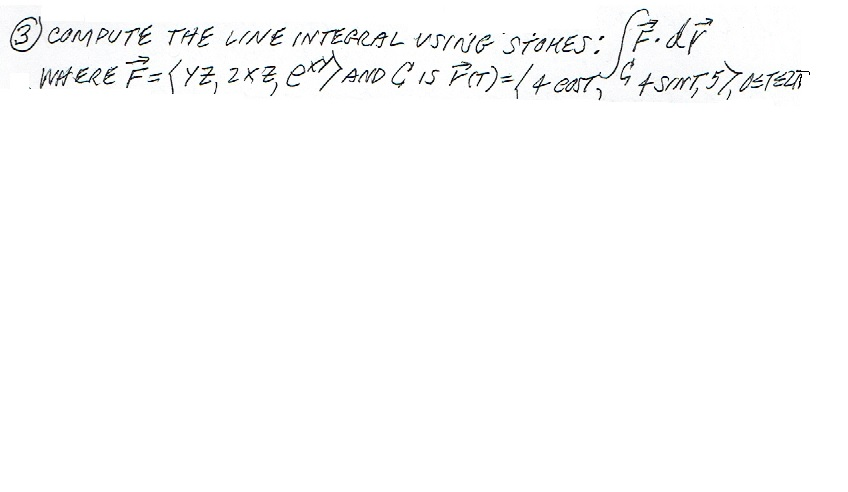 ③ COMPUTE THE LINE INTEGRAL USING STOKES: ∫_C F⃗·dr⃗
WHERE F⃗=⟨YZ, 2XZ, e^{XY}⟩ AND C IS r⃗(T)=⟨4 COST, 4 SINT, 5⟩, 0≤T≤2π